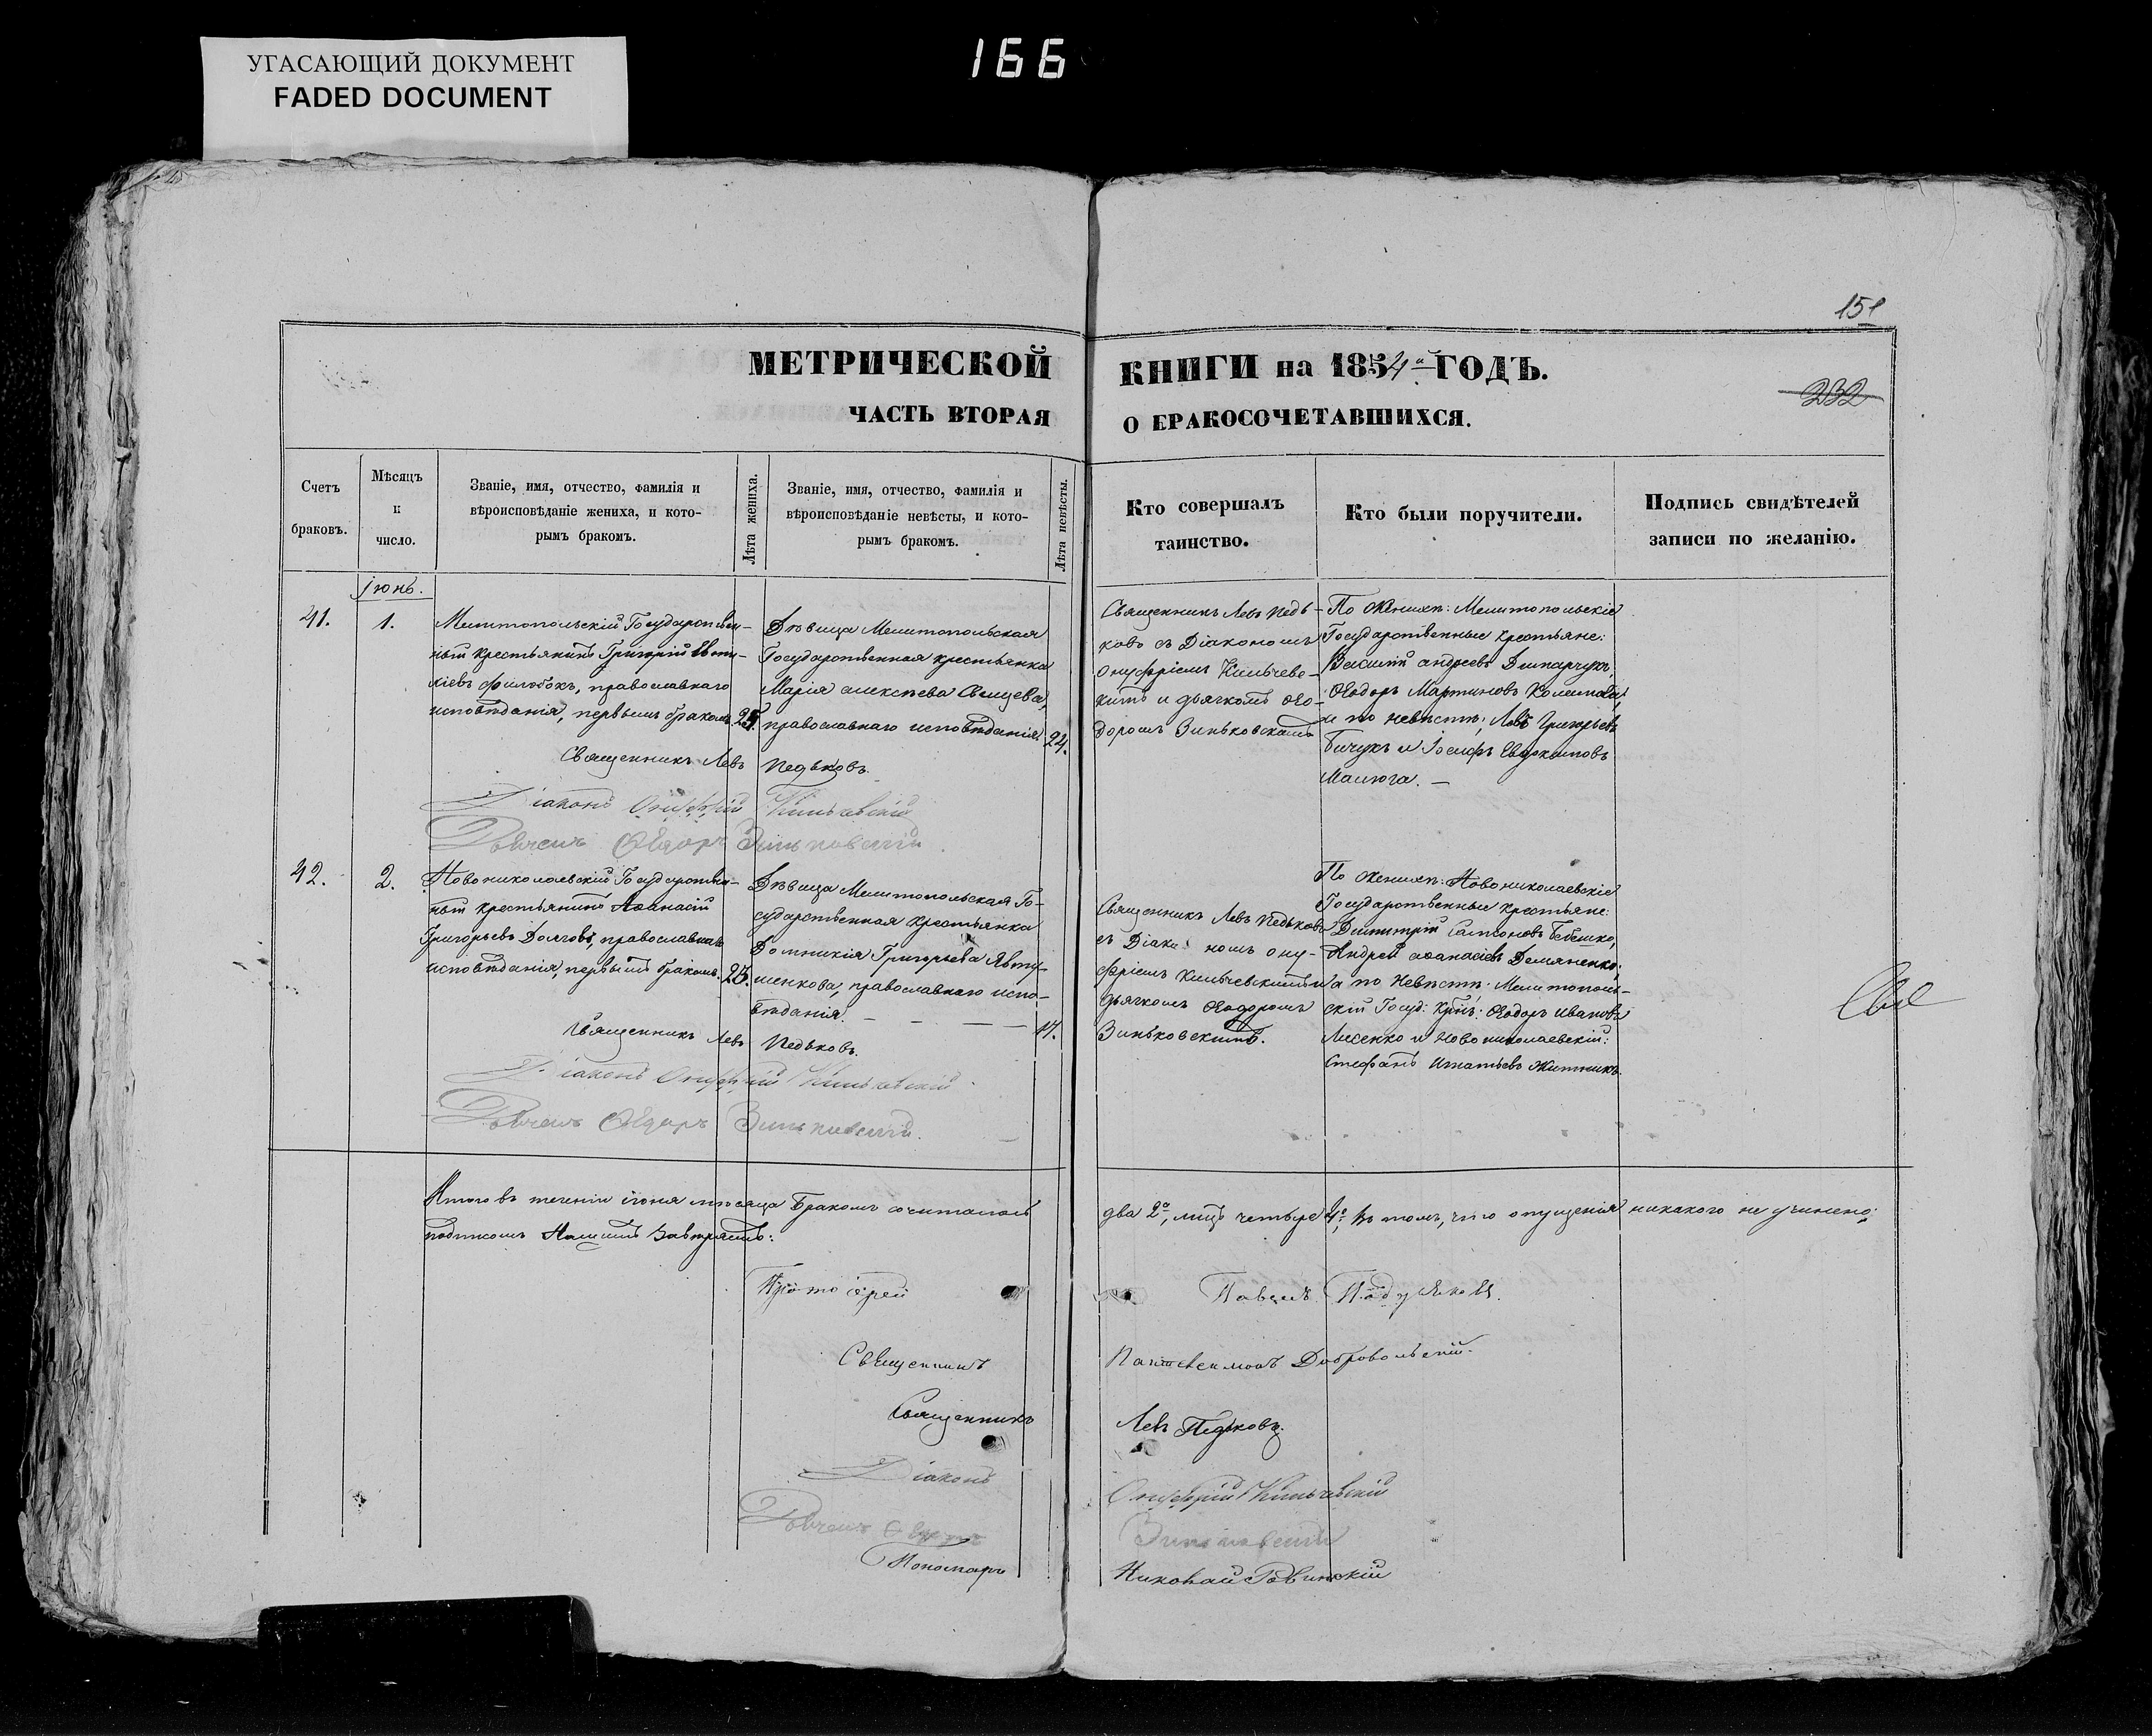 УГАСАЮЩИЙ ДОКУМЕНТ
FADED DOCUMENT
166
151
МЕТРИЧЕСКОЙ
КНИГИ на 1854 ГОДЪ.
232
ЧАСТЬ ВТОРАЯ
О БРАКОСОЧЕТАВШИХСЯ.
Счетъ
браковъ.
Мѣсяцъ
и
число.
Званіе, имя, отчество, фамилія и
вѣроисповѣданіе жениха, и кото-
рымъ бракомъ.
Лѣта жениха.
Званіе, имя, отчество, фамилія и
вѣроисповѣданіе невѣсты, и кото-
рымъ бракомъ.
Лѣта невѣсты.
Кто совершалъ
таинство.
Кто были поручители.
Подпись свидѣтелей
записи по желанію.
Іюнь.
41.
1.
Мелитопольскій Государствен-
ный крестьянинъ Григорій Евти-
хіевъ Филобокъ, православнаго
исповѣданія, первымъ бракомъ.
25.
Дѣвица Мелитопольская
Государственная крестьянка
Марія Алексѣева
православнаго исповѣданія.
24.
Священникъ Левъ Педь-
ковъ съ Діакономъ
Онуфріемъ Кильчев-
кимъ и дьячкомъ Ѳео-
доромъ Зиньковскимъ
По Женихѣ: Мелитопольскіе
Государственные крестьяне:
Василій Андреевъ
Ѳеодоръ Мартиновъ
и по невѣстѣ: Левъ Григорьевъ
Бичукъ и Іосифъ Евдокимовъ
Малюга. —
Священникъ Левъ Педьковъ.
Діаконъ Онуфрій Кильчевскій
Дьячекъ Ѳеодоръ Зиньковскій.
42.
2.
Новониколаевскій Государствен-
ный крестьянинъ Аѳанасій
Григорьевъ Долговъ, православнаго
исповѣданія, первымъ бракомъ.
25.
Дѣвица Мелитопольская Го-
сударственная крестьянка
Домникія Григорьева Явту-
шенкова, православнаго испо-
вѣданія. — — — —
17.
Священникъ Левъ Педьковъ
съ Діакономъ Ону-
фріемъ Кильчевскимъ и
дьячкомъ Ѳеодоромъ
Зиньковскимъ.
По Женихѣ: Новониколаевскіе
Государственные крестьяне:
Димитрій Самсоновъ Бебешко,
Андрей Аѳанасіевъ Демяненко;
а по Невѣстѣ: Мелитополь-
скій Госуд: Крѣн: Ѳеодоръ Ивановъ
Лисенко и Новониколаевскій:
Стефанъ Игнатьевъ Житникъ.
Священникъ Левъ Педьковъ.
Діаконъ Онуфрій Кильчевскій.
Дьячекъ Ѳеодоръ Зиньковскій.
Итого въ теченіи іюня мѣсяца Бракомъ сочиталось два 2, лицъ четыре 4, въ томъ, что опущенія никакого не учинено;
подписомъ Нашимъ Завѣряемъ:
Протоіерей Павелъ
Священникъ Пантелеимонъ Добровольскій.
Священникъ Левъ Педьковъ.
Діаконъ Онуфрій Кильчевскій
Дьячекъ Ѳеодоръ Зиньковскій
Пономарь Николай